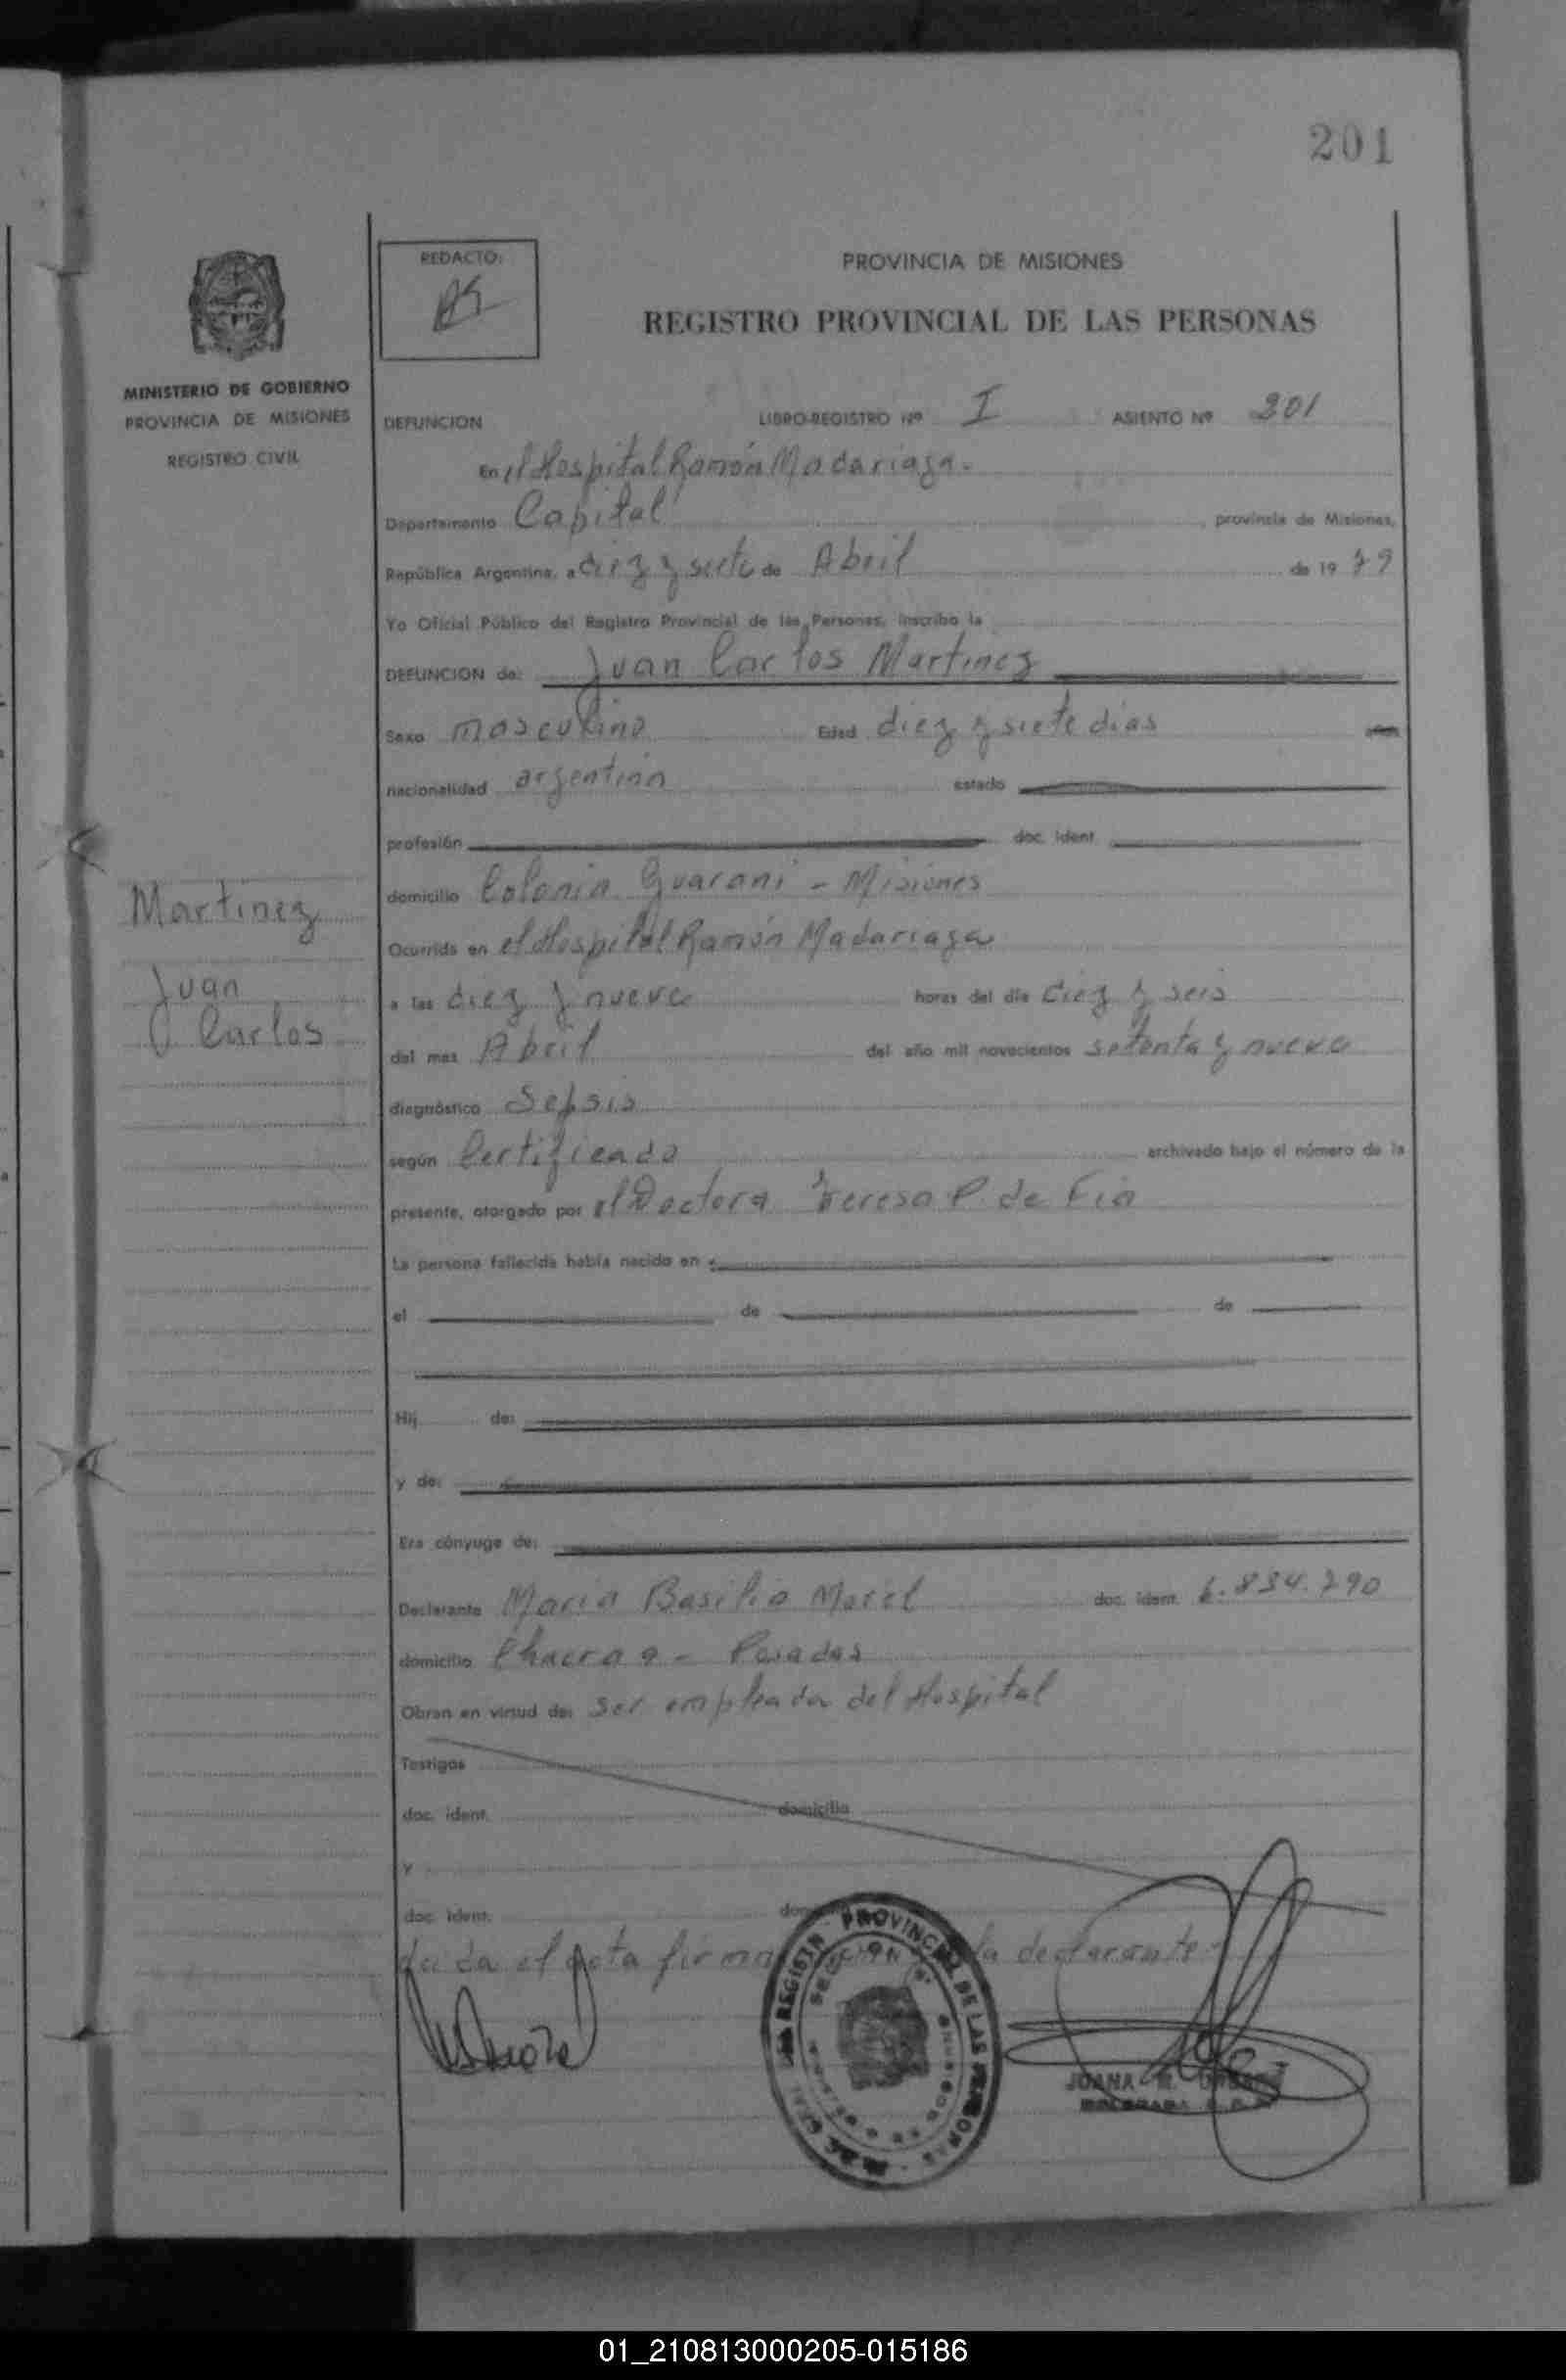 201
REDACTO:
PROVINCIA DE MISIONES
REGISTRO PROVINCIAL DE LAS PERSONAS
MINISTERIO DE GOBIERNO
PROVINCIA DE MISIONES
REGISTRO CIVIL
DEFUNCION LIBRO-REGISTRO Nº I ASIENTO Nº 201
En el Hospital Ramón Madariaga.
Departamento Capital, provincia de Misiones,
República Argentina, a diez y siete de Abril de 1979
Yo Oficial Público del Registro Provincial de las Personas, inscribo la
DEFUNCION de: Juan Carlos Martinez
Sexo masculino Edad diez y siete dias
nacionalidad argentina estado
profesión doc. ident.
domicilio Colonia Guarani - Misiones
Ocurrida en el Hospital Ramón Madariaga
a las diez y nueve horas del día diez y seis
del mes Abril del año mil novecientos setenta y nueve
diagnóstico Sepsis
según Certificado archivado bajo el número de la
presente, otorgado por el Doctora Teresa P. de Fia
La persona fallecida había nacido en
el de de
Hij de:
y de:
Era cónyuge de:
Declarante Maria Basilia Morel doc. ident. 6.834.790
domicilio Chacra 9 - Posadas
Obran en virtud de: ser empleada del Hospital
Testigos
doc. ident. domicilio
y
doc. ident.
el acta firma la declarante
Martinez
Juan
Carlos
PROVINCIAL DE LAS PERSONAS
JUANA
01_210813000205-015186